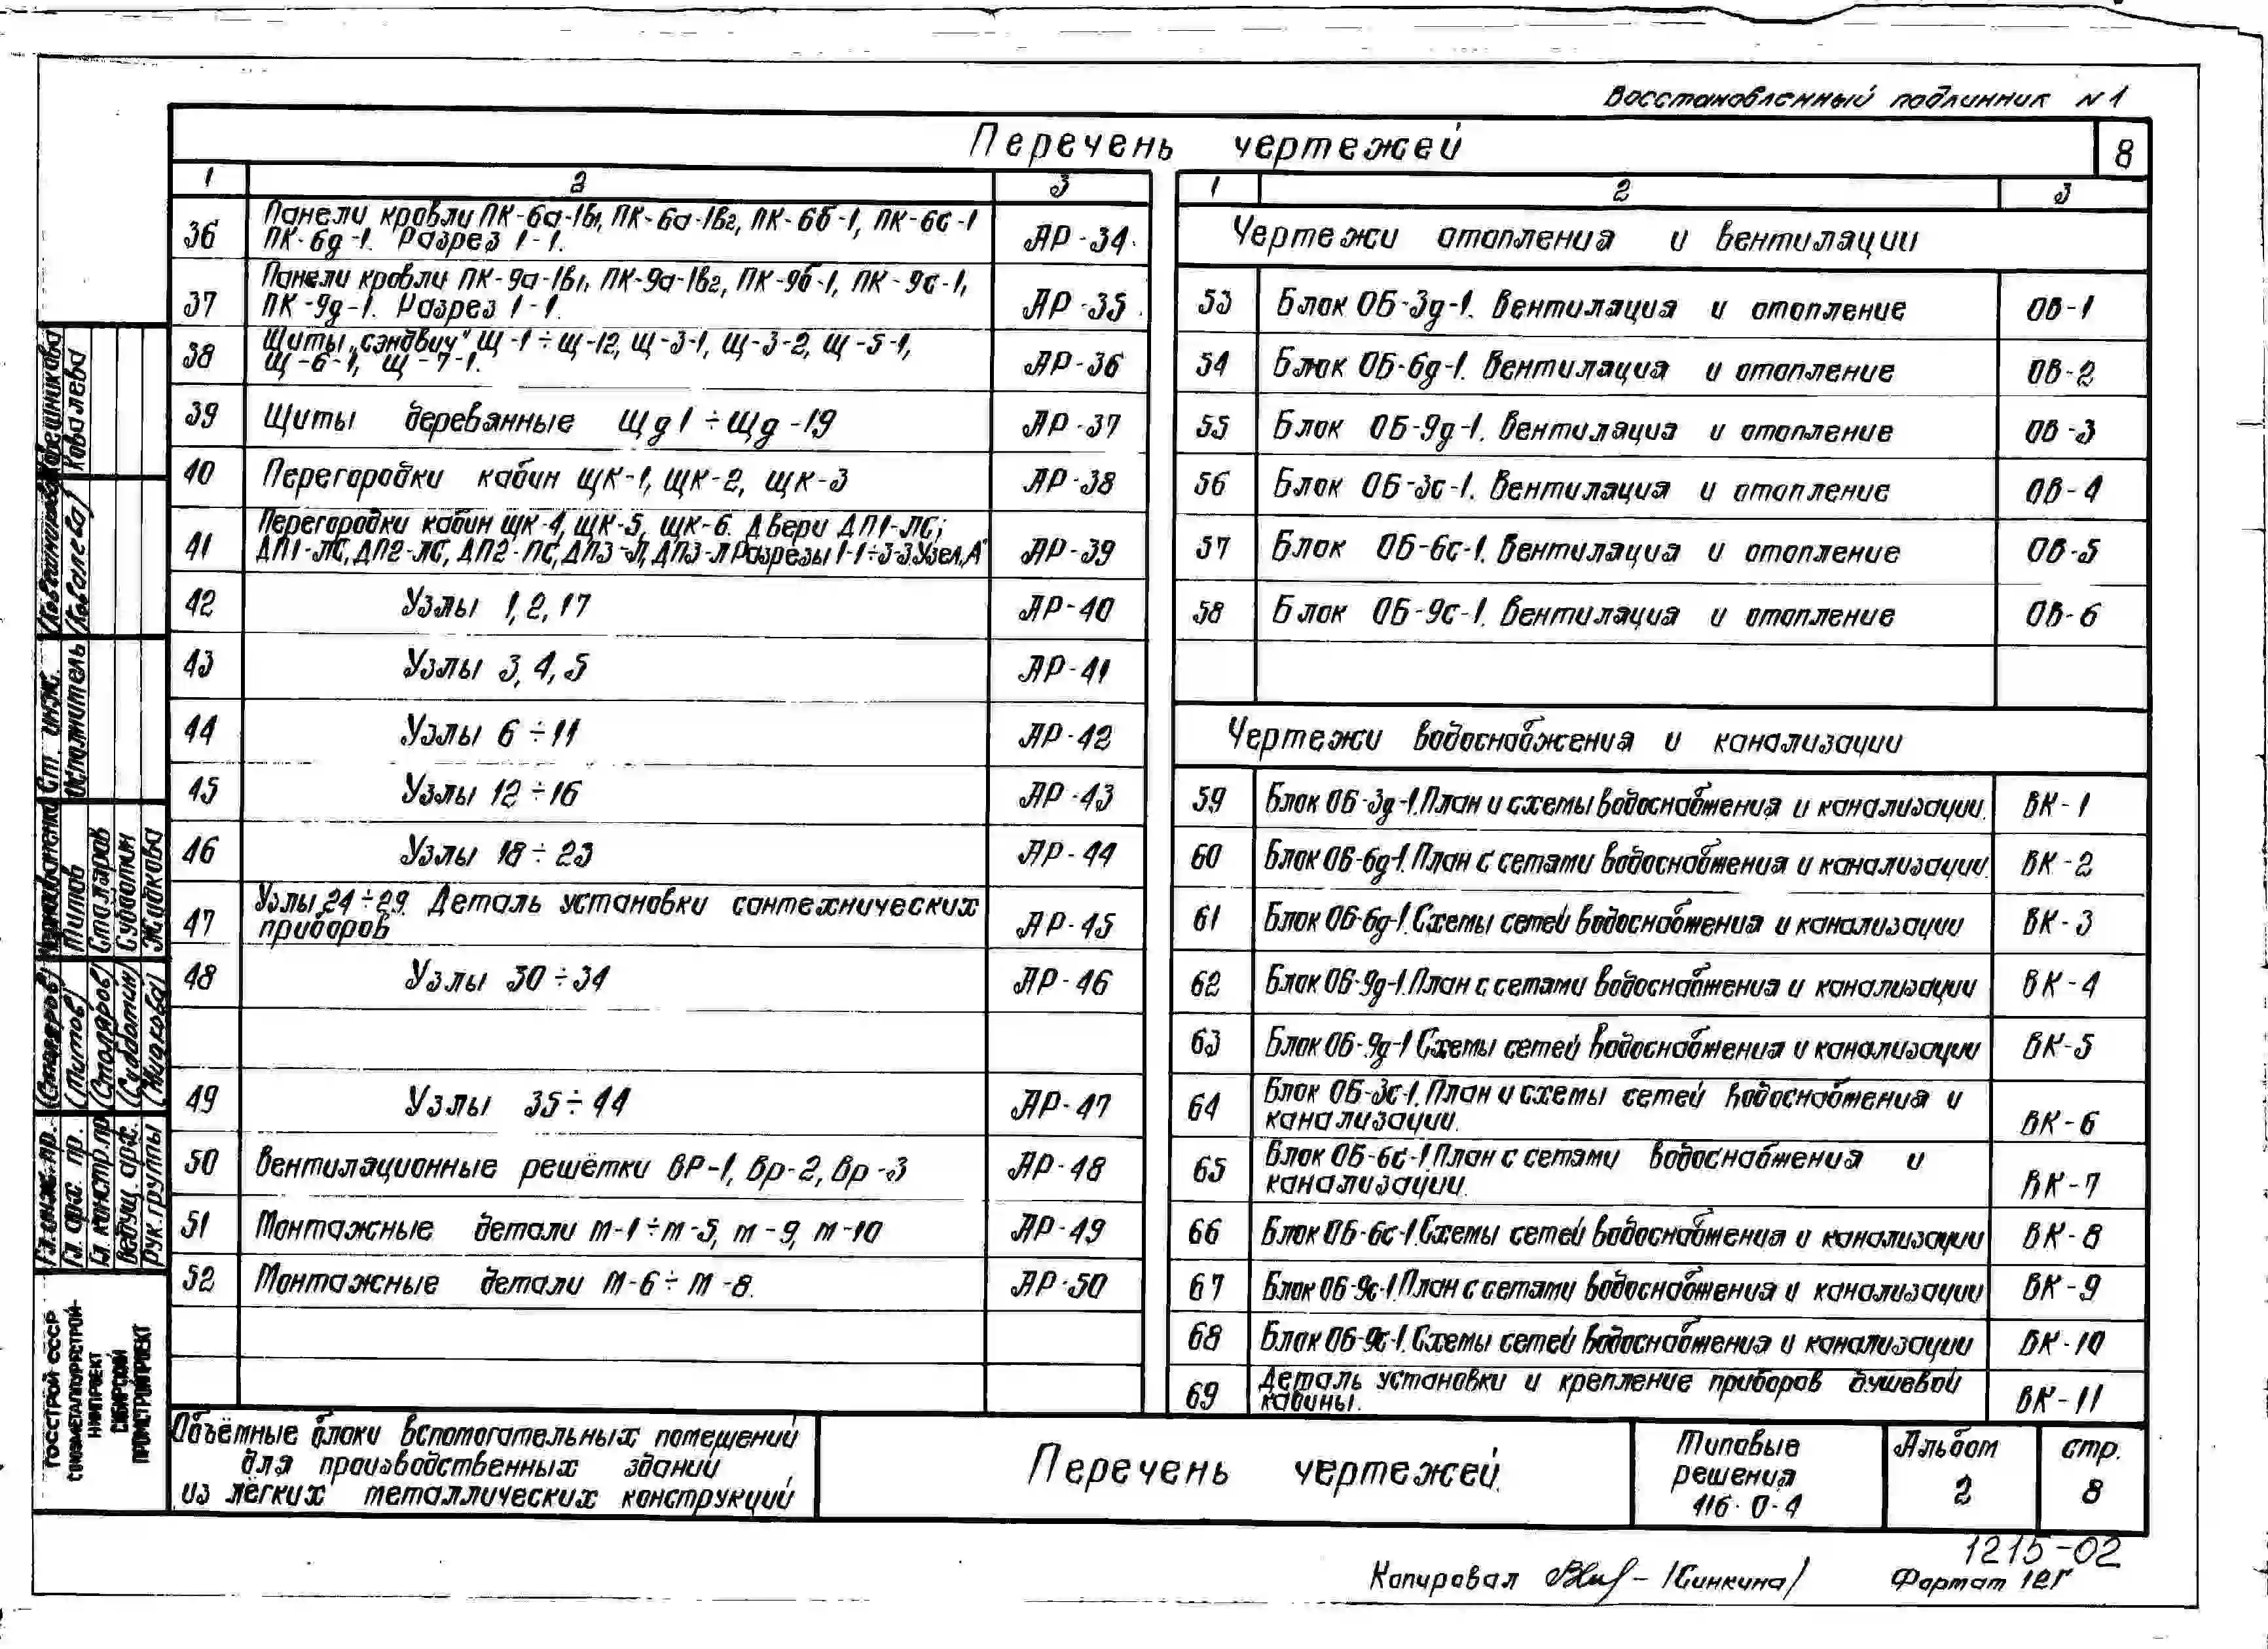 Восстановленный подлинник N 1
Перечень чертежей
8
1 2 3
36 Панели кровли ПК-6а-1в1, ПК-6а-1в2, ПК-6б-1, ПК-6с-1
ПК-6д-1. Разрез 1-1. АР-34
37 Панели кровли ПК-9а-1в1, ПК-9а-1в2, ПК-9б-1, ПК-9с-1,
ПК-9д-1. Разрез 1-1. АР-35
38 Щиты „сэндвич" Щ-1÷Щ-12, Щ-3-1, Щ-3-2, Щ-5-1,
Щ-6-1, Щ-7-1. АР-36
39 Щиты деревянные Щд1÷Щд-19 АР-37
40 Перегородки кабин ЩК-1, ЩК-2, ЩК-3 АР-38
41 Перегородки кабин ЩК-4, ЩК-5, ЩК-6. Двери ДП1-ЛС;
ДП1-ЛС, ДП2-ЛС, ДП2-ПС, ДП3-Л, ДП3-Л Разрезы 1-1÷3-3. Узел „А" АР-39
42 Узлы 1, 2, 17 АР-40
43 Узлы 3, 4, 5 АР-41
44 Узлы 6÷11 АР-42
45 Узлы 12÷16 АР-43
46 Узлы 18÷23 АР-44
47 Узлы 24÷29. Деталь установки сантехнических
приборов АР-45
48 Узлы 30÷34 АР-46
49 Узлы 35÷44 АР-47
50 Вентиляционные решётки ВР-1, Вр-2, Вр-3 АР-48
51 Монтажные детали М-1÷М-5, М-9, М-10 АР-49
52 Монтажные детали М-6÷М-8. АР-50
1 2 3
Чертежи отопления и вентиляции
53 Блок ОБ-3д-1. Вентиляция и отопление ОВ-1
54 Блок ОБ-6д-1. Вентиляция и отопление ОВ-2
55 Блок ОБ-9д-1. Вентиляция и отопление ОВ-3
56 Блок ОБ-3с-1. Вентиляция и отопление ОВ-4
57 Блок ОБ-6с-1. Вентиляция и отопление ОВ-5
58 Блок ОБ-9с-1. Вентиляция и отопление ОВ-6
Чертежи водоснабжения и канализации
59 Блок ОБ-3д-1. План и схемы водоснабжения и канализации. ВК-1
60 Блок ОБ-6д-1. План с сетями водоснабжения и канализации. ВК-2
61 Блок ОБ-6д-1. Схемы сетей водоснабжения и канализации ВК-3
62 Блок ОБ-9д-1. План с сетями водоснабжения и канализации ВК-4
63 Блок ОБ-9д-1 Схемы сетей водоснабжения и канализации ВК-5
64 Блок ОБ-3с-1. План и схемы сетей водоснабжения и
канализации. ВК-6
65 Блок ОБ-6с-1. План с сетями водоснабжения и
канализации. ВК-7
66 Блок ОБ-6с-1. Схемы сетей водоснабжения и канализации ВК-8
67 Блок ОБ-9с-1. План с сетями водоснабжения и канализации ВК-9
68 Блок ОБ-9с-1. Схемы сетей водоснабжения и канализации ВК-10
69 Деталь установки и крепление приборов душевой
кабины. ВК-11
Ст. инж.
Исполнитель (Ковалева) Ковалева
Гл. инж. пр.
Гл. арх. пр. (Титов) Титов
Гл. констр. пр (Столяров) Столяров
Ведущ. арх. (Субботин) Субботин
Рук. группы (Жидкова) Жидкова
ГОССТРОЙ СССР
СОЮЗМЕТАЛЛУРГСТРОЙ-
НИИПРОЕКТ
СИБИРСКИЙ
ПРОМСТРОЙПРОЕКТ
Объёмные блоки вспомогательных помещений
для производственных зданий
из лёгких металлических конструкций
Перечень чертежей.
Типовые
решения
416-0-4
Альбом
2
стр.
8
1215-02
Копировал /Синкина/ Формат 12Г